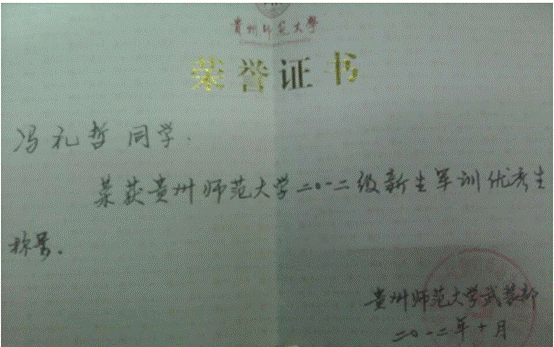 贵州师范大学
荣誉证书
冯礼哲同学.
荣获贵州师范大学二〇一二级新生军训优秀生
称号.
贵州师范大学武装部
二〇一二年十月